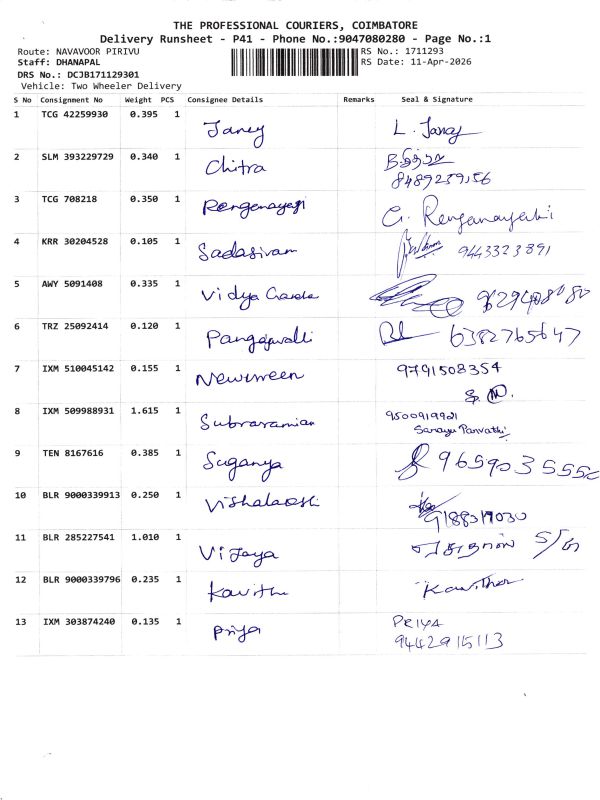 THE PROFESSIONAL COURIERS, COIMBATORE
Delivery Runsheet - P41 - Phone No.:9047080280 - Page No.:1
Route: NAVAVOOR PIRIVU RS No.: 1711293
Staff: DHANAPAL RS Date: 11-Apr-2026
DRS No.: DCJB171129301
Vehicle: Two Wheeler Delivery
S No Consignment No Weight PCS Consignee Details Remarks Seal & Signature
1 TCG 42259930 0.395 1 Janey L. Janey
2 SLM 393229729 0.340 1 Chitra
8489259156
3 TCG 708218 0.350 1 Renganayagi G. Renganayaki
4 KRR 30204528 0.105 1 Sadasivam 9443323891
5 AWY 5091408 0.335 1 Vidya
6 TRZ 25092414 0.120 1 6382765647
7 IXM 510045142 0.155 1 9791508354
8 IXM 509988931 1.615 1 Subraramian 9500919921
Sarayu Parvathi
9 TEN 8167616 0.385 1 Suganya 9659035552
10 BLR 9000339913 0.250 1
11 BLR 285227541 1.010 1 Vijaya
12 BLR 9000339796 0.235 1 Kavitha Kavitha
13 IXM 303874240 0.135 1 Priya PRIYA
9442915113